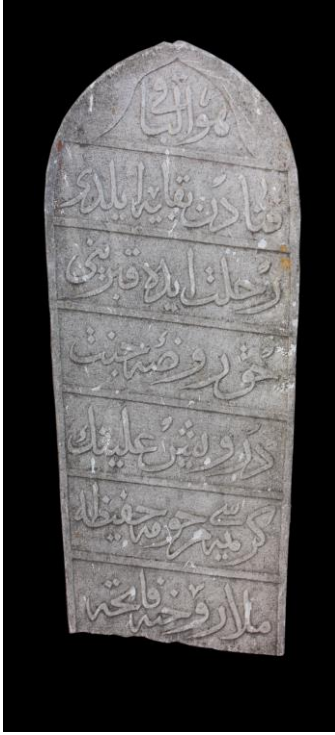 هو الباقي
فنادن بقايه ايلدى
رحلت ايده قبرينى
حق روضۀ جنت
درويش علينك
كريمه سى مرحومه حفيظه
ملا روحنه فاتحه